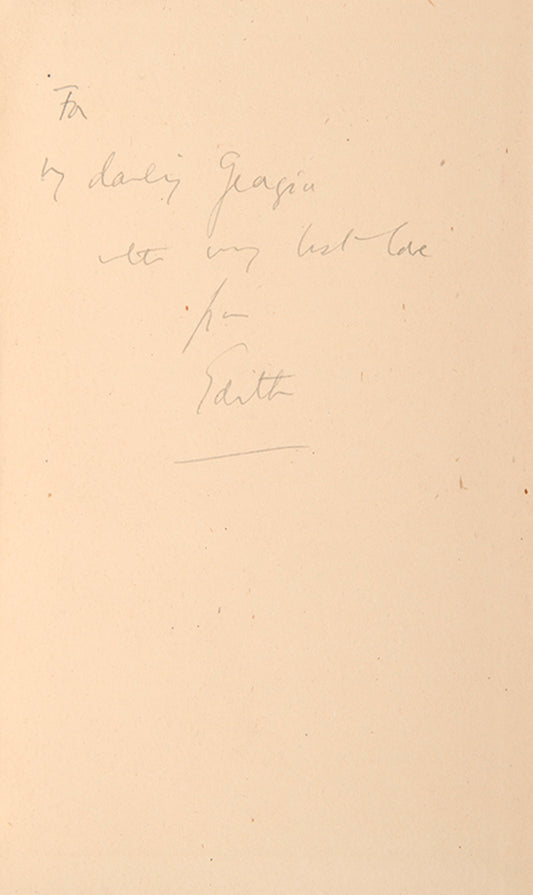 For
my darling Georgia
with my best love
from
Edith